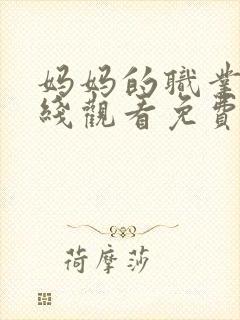 妈妈的職業
綫觀看免費
荷摩莎